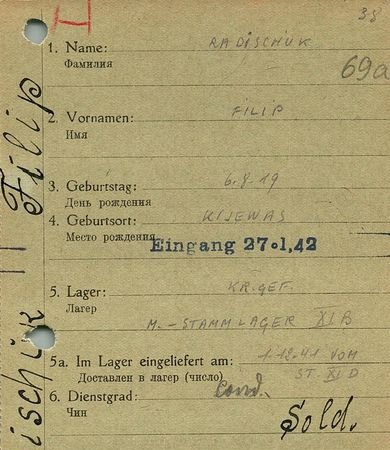 38
1. Name: RADISCHUK
Фамилия
69a
2. Vornamen: FILIP
Имя
3. Geburtstag: 6.8.19
День рождения
4. Geburtsort: KIJEWAS
Место рождения
Eingang 27.1.42
5. Lager: KR.GEF.
Лагерь
M.-STAMMLAGER XI B
5a. Im Lager eingeliefert am: 1.12.41 VOM
Доставлен в лагер (число) ST. XI D
6. Dienstgrad:
Чин
Sold.
ischük Filip